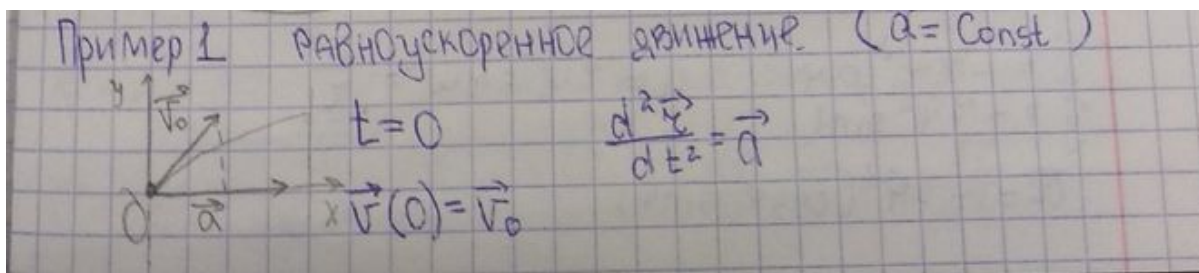 Пример 1 Равноускоренное движение. (a = Const)
y v⃗₀ t = 0 d²r⃗/dt² = a⃗
O a⃗ x v⃗(0) = v⃗₀